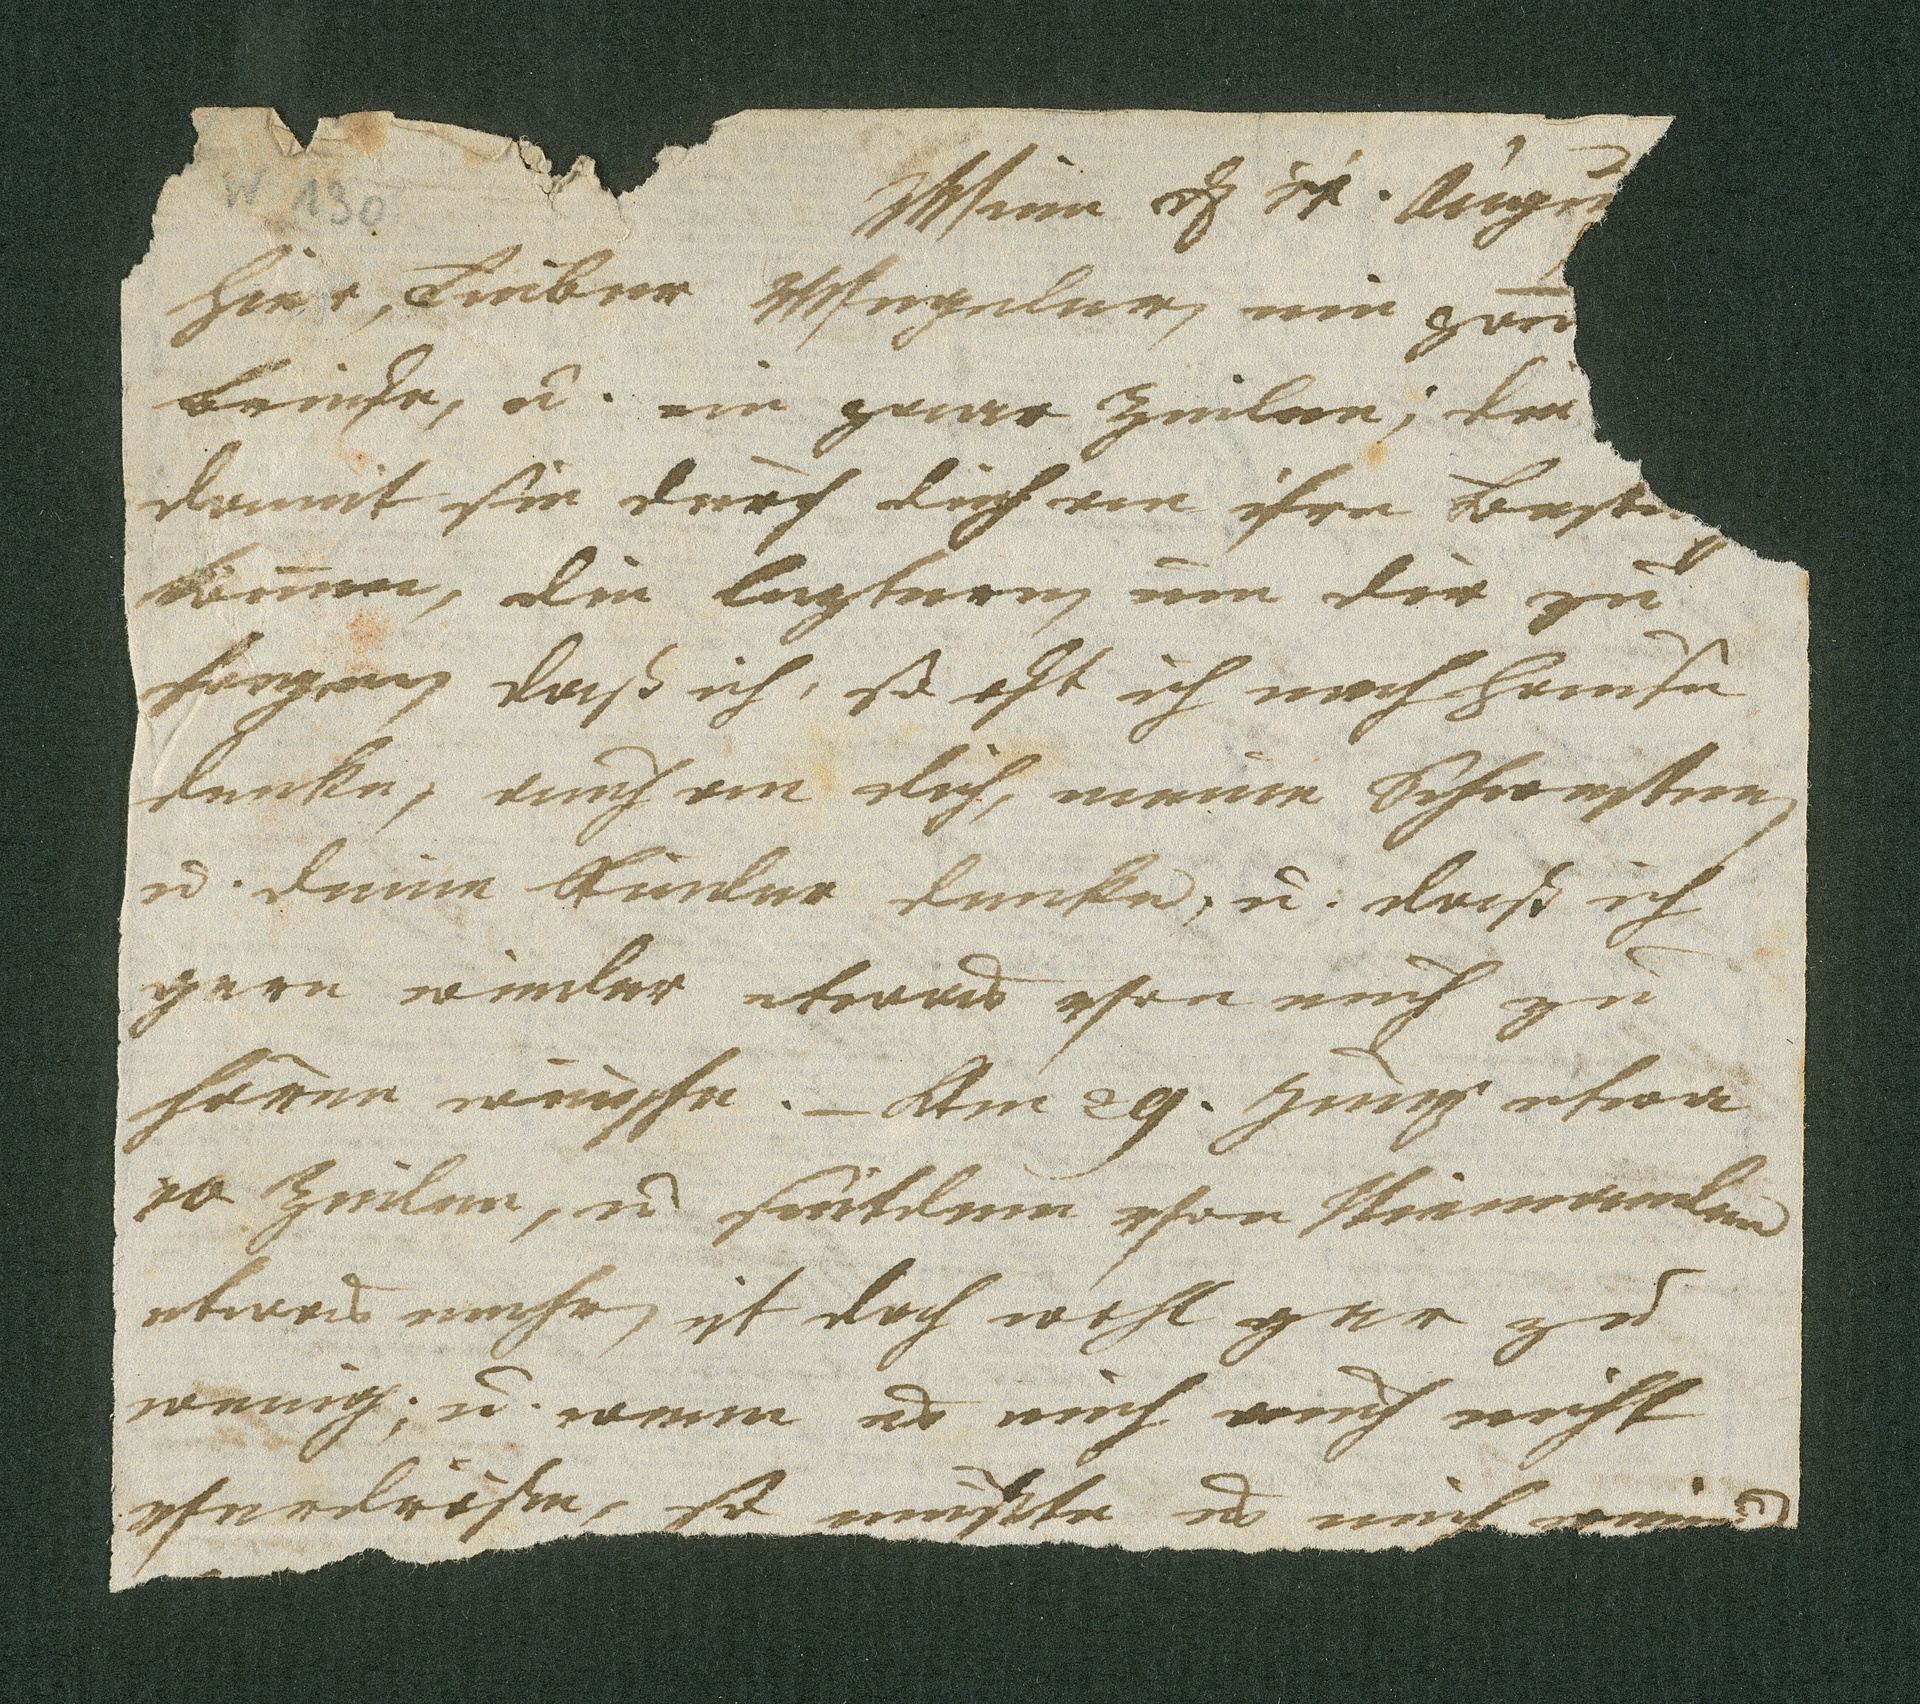 W 130
Wien d 14. Augu
Hier, Lieber Wegeler, ein paar
briefe, u. ein paar Zeilen; die
damit sie durch dich an ihre Besti
kommen, die leztern, um dir zu
sagen, daß ich, so oft ich nach Hause
denke, auch an dich, meine Schwester,
u. deine Kinder denke, u: daß ich
gern wieder etwas von euch zu
hören wünsche. – Am 29. Juny etwa
10 Zeilen, u seitdem von Niemanden
etwas mehr, ist doch wohl gar zu
wenig; u. wenn es euch auch nicht
verdriesse, so müßte es mich